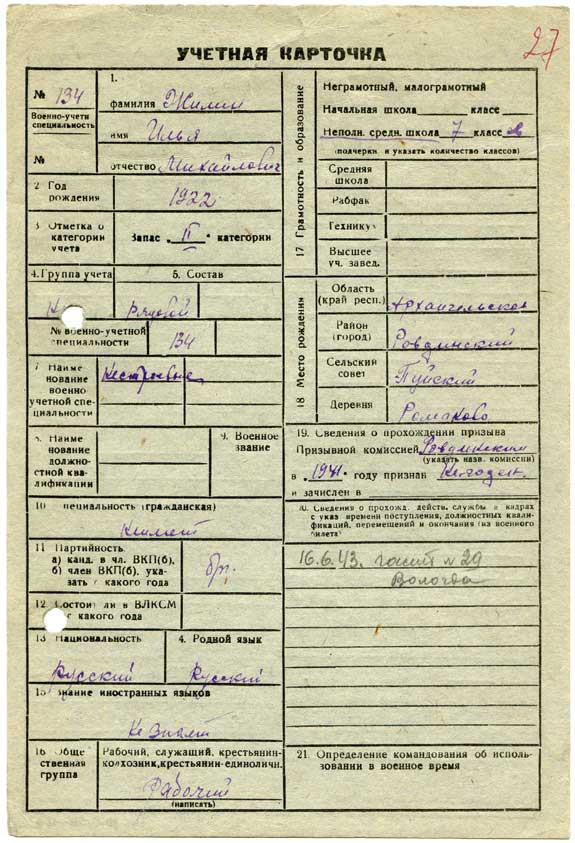 27
УЧЕТНАЯ КАРТОЧКА
№ 134
Военно-учетн
специальность
№
1.
фамилия Жилин
имя Илья
отчество Михайлович
2 Год
рождения
1922
3 Отметка о
категории
учета
Запас „II“ категории
4. Группа учета
5. Состав
Рядовой
№ военно-учетной
специальности
134
7 Наиме
нование
военно
учетной спе-
циальности
Нестроевые
8. Наиме
нование
должно-
стной ква-
лификации
9. Военное
звание
10 пециальность (гражданская)
Не имеет
11 Партийность
а) канд. в чл. ВКП(б),
б) член ВКП(б), ука-
зать с какого года
б/п.
12 Состои ли в ВЛКСМ
с какого года
13 Национальность
Русский
4. Родной язык
Русский
15 знание иностранных языков
Не знает
16 Обще
ственная
группа
Рабочий, служащий, крестьянин-
колхозник, крестьянин-единоличн.
Рабочий
(написать)
17 Грамотность и образование
Неграмотный, малограмотный
Начальная школа класс
Неполн. средн. школа 7 класс
(подчеркн и указать количество классов)
Средняя
школа
Рабфак
Технику
Высшее
уч. завед.
18 Место рождения
Область
(край респ.)
Архангельская
Район
(город)
Ровдинский
Сельский
совет
Пуйский
Деревня
Романово
19. Сведения о прохождении призыва
Призывной комиссией Ровдинский
(указать назв. комиссии)
в 1941 году признан Негоден
и зачислен в
20. Сведения о прохожд. действ. службы в кадрах
с указ времени поступления, должностных квали-
фикаций, перемещений и окончания (из военного
билета)
16.6.43. госпит № 29
Вологда
21. Определение командования об исполь-
зовании в военное время